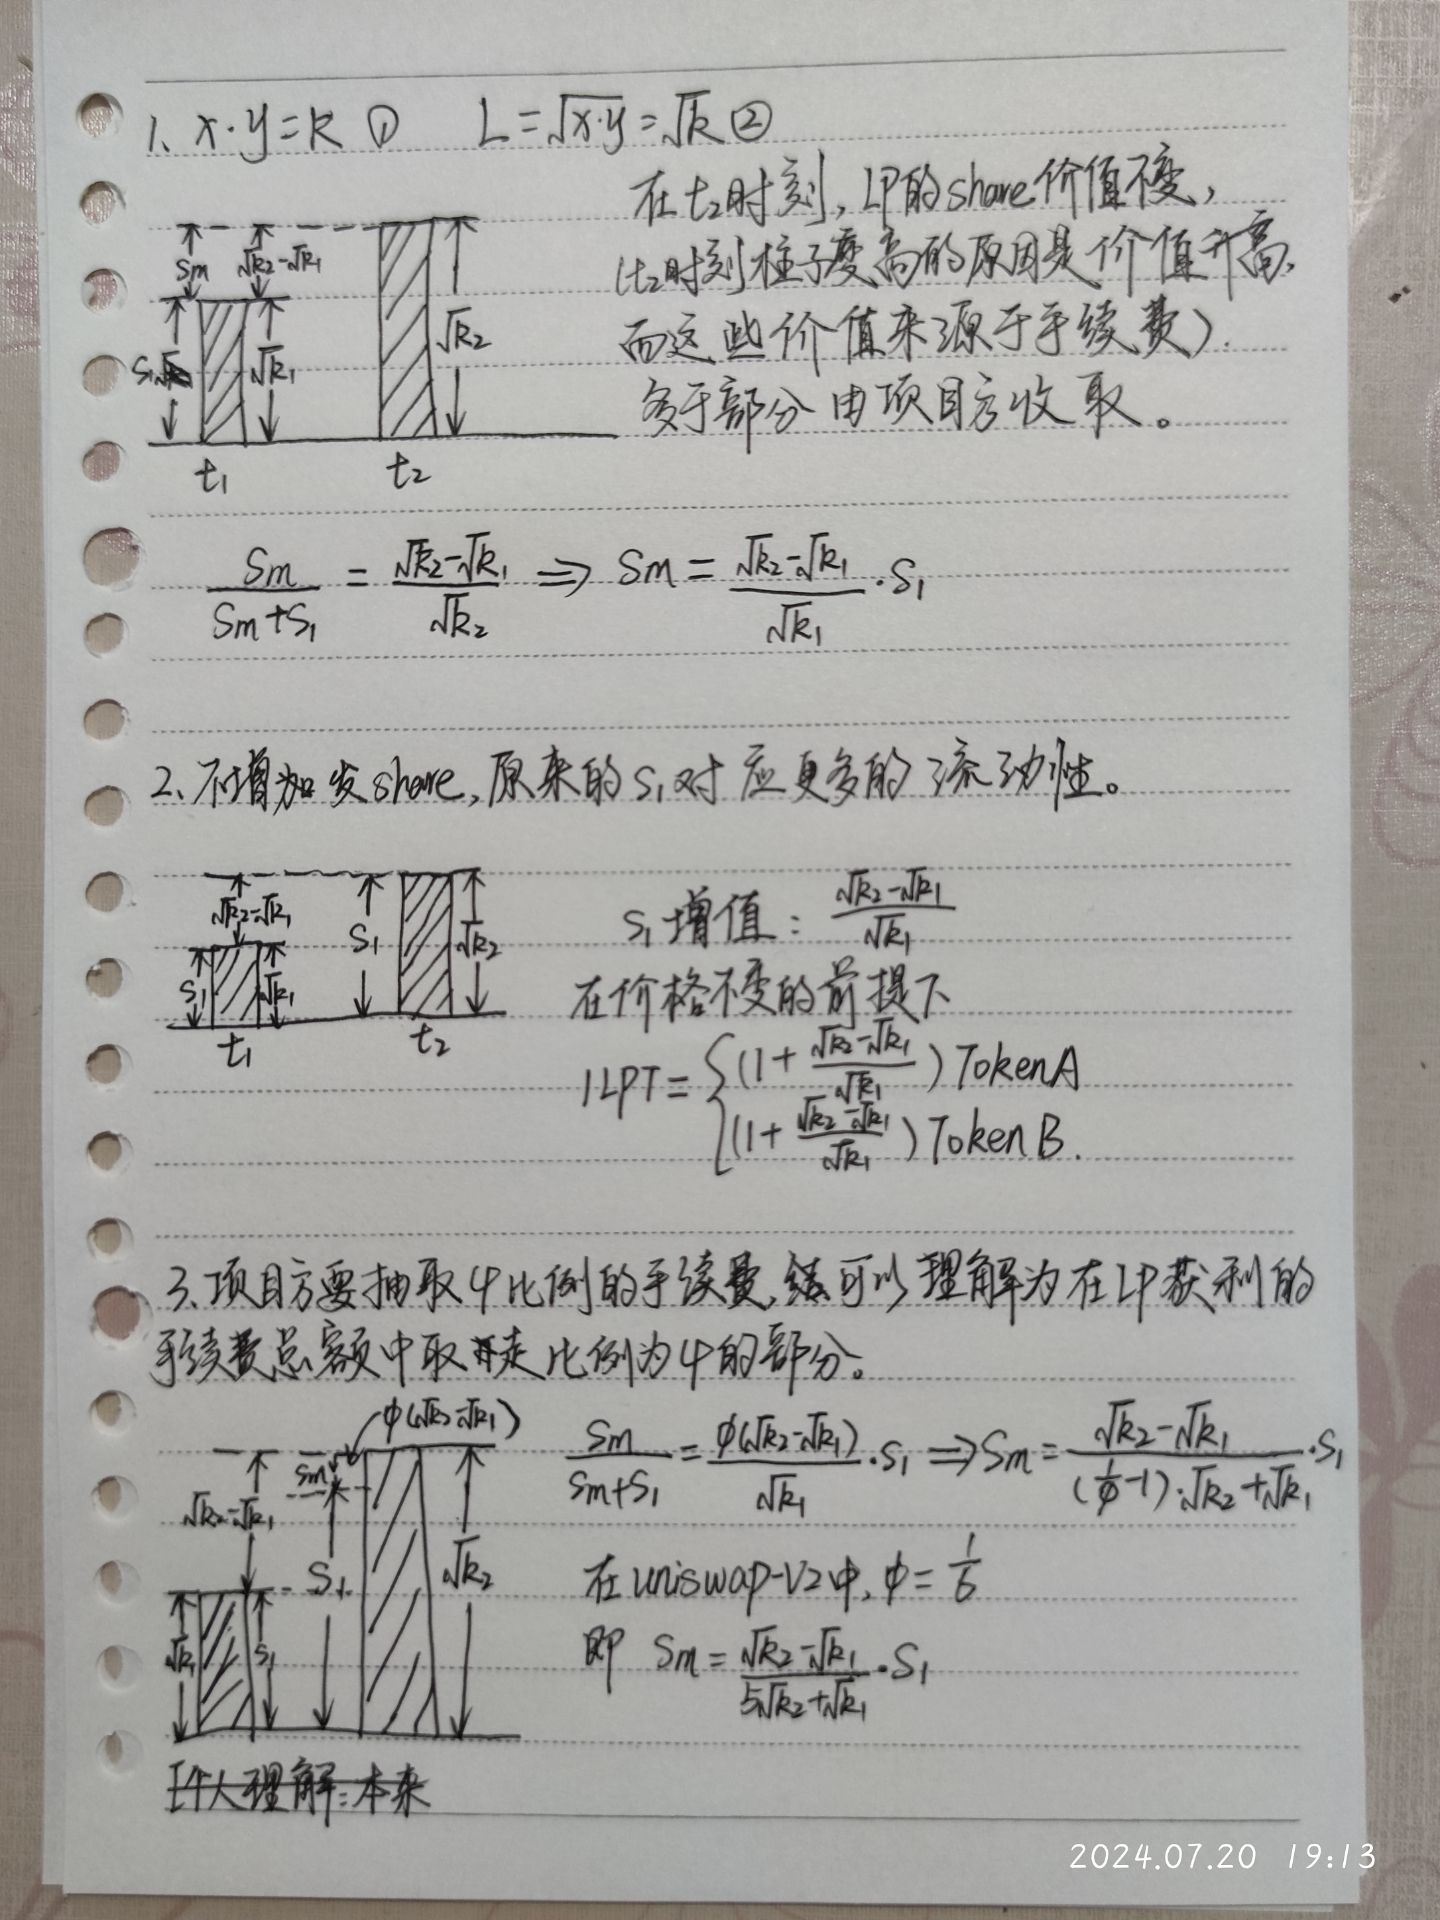 1、x·y=k ① L=√x·y=√k ②
在t₂时刻,LP的share价值不变,
(t₂时刻柱子变高的原因是价值升高,
而这些价值来源于手续费).
多于部分由项目方收取。
Sm √k₂-√k₁
S₁ √k₁ √k₂
t₁ t₂
Sm/(Sm+S₁) = (√k₂-√k₁)/√k₂ ⇒ Sm = (√k₂-√k₁)/√k₁ ·S₁
2、不增加发share,原来的S₁对应更多的流动性。
√k₂-√k₁ S₁ √k₂
S₁ √k₁
t₁ t₂
S₁增值: (√k₂-√k₁)/√k₁
在价格不变的前提下
1LPT= { (1+(√k₂-√k₁)/√k₁) TokenA
(1+(√k₂-√k₁)/√k₁) TokenB.
3、项目方要抽取φ比例的手续费,可以理解为在LP获利的
手续费总额中取走比例为φ的部分。
φ(√k₂-√k₁)
Sm
√k₂-√k₁ S₁ √k₂
√k₁ S₁
Sm/(Sm+S₁) = φ(√k₂-√k₁)/√k₁ ·S₁ ⇒ Sm = (√k₂-√k₁)/((1/φ-1)·√k₂+√k₁) ·S₁
在uniswap-V2中,φ=1/6
即 Sm = (√k₂-√k₁)/(5√k₂+√k₁) ·S₁
个人理解:本来
2024.07.20 19:13